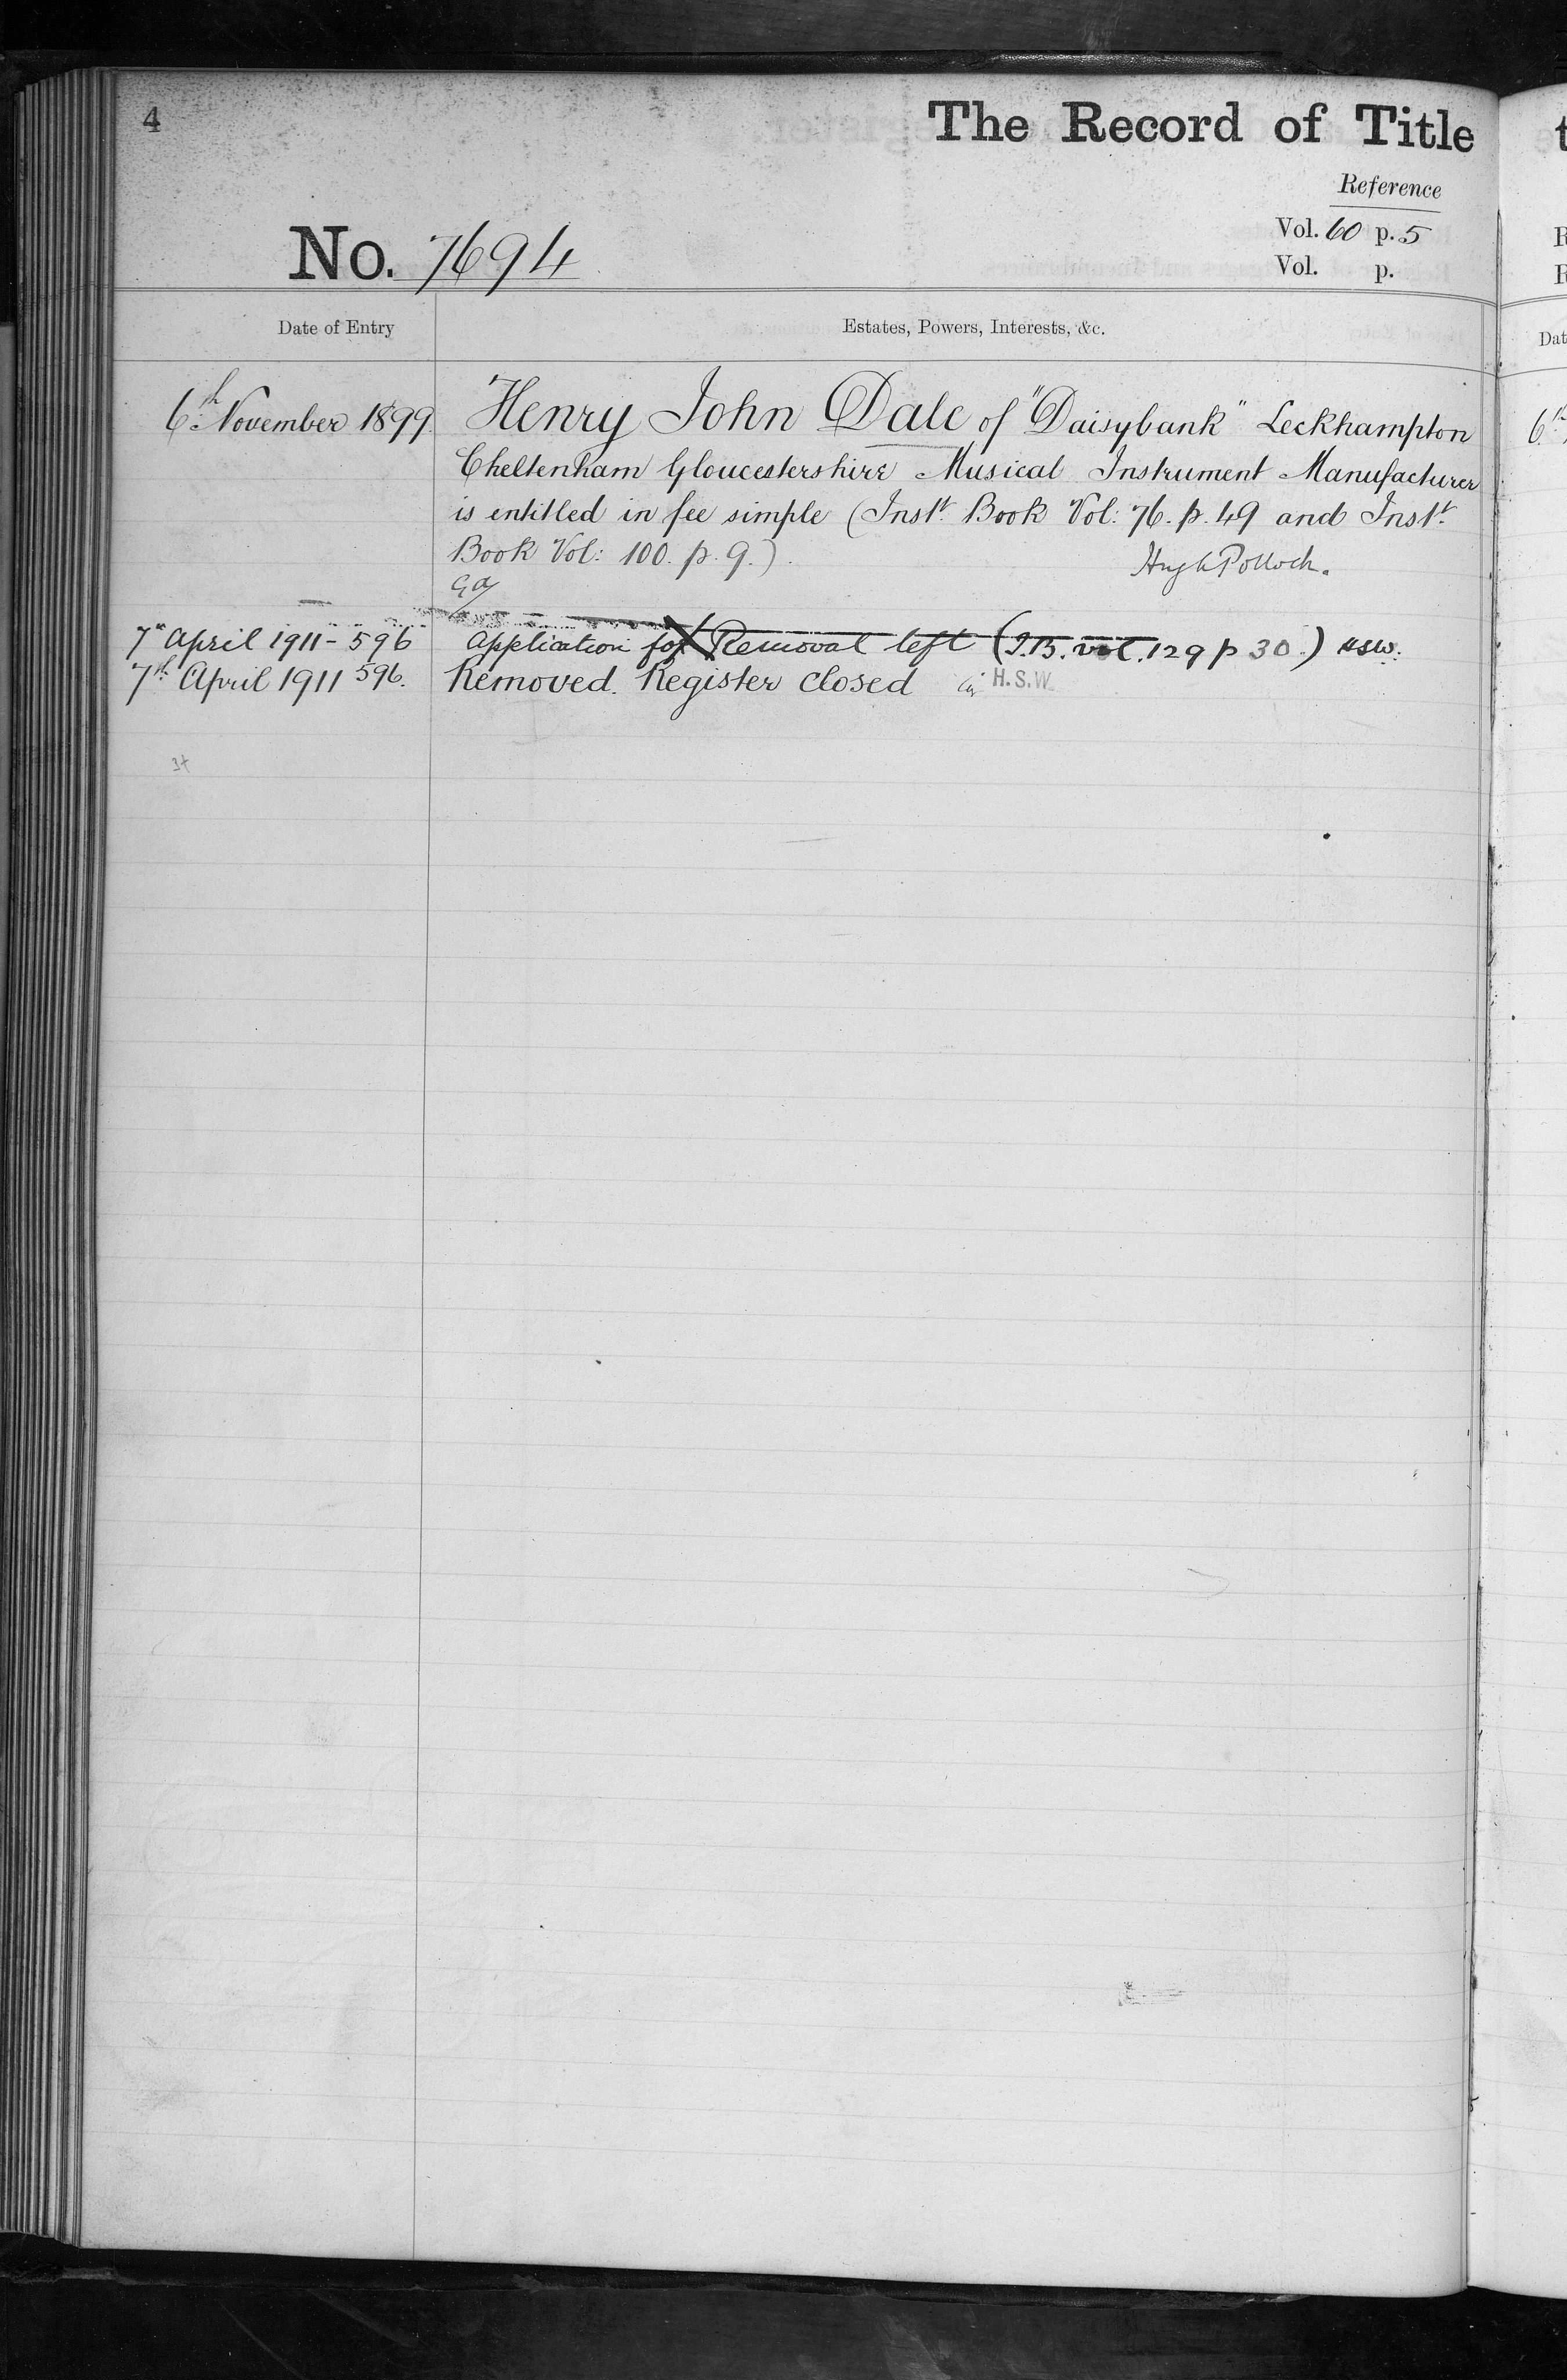 4
The Record of Title
Reference
Vol. 60 p. 5
No. 7694
Vol. p.
Date of Entry
Estates, Powers, Interests, &c.
6th November 1899. Henry John Dale of "Daisybank" Leckhampton
Cheltenham Gloucestershire Musical Instrument Manufacturer
is entitled in fee simple (Inst. Book Vol: 76. p. 49 and Inst.
Book Vol: 100. p. 9.).
Hugh Pollock.
7th April 1911 - 596 Application for Removal left (I.B. vol. 129 p 30.) HSW.
7th April 1911 596. Removed. Register closed H.S.W.